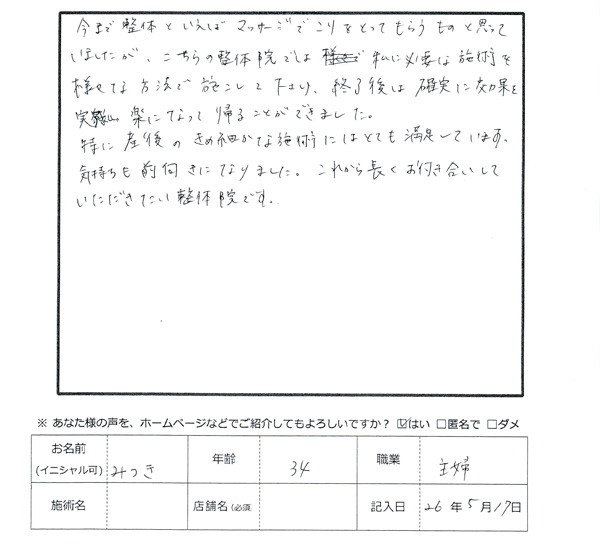 今まで整体といえばマッサージでこりをとってもらうものと思って
いましたが、こちらの整体院では 私に必要な施術を
様々な方法で施こして下さり、終了後は確実に効果を
実感し 楽になって帰ることができました。
特に産後のきめ細かな施術にはとても満足しています。
気持ちも前向きになりました。これから長くお付き合いして
いただきたい整体院です。
※ あなた様の声を、ホームページなどでご紹介してもよろしいですか? ☑はい □匿名で □ダメ
お名前 (イニシャル可) みつき 年齢 34 職業 主婦
施術名 店舗名(必須 記入日 26年5月17日